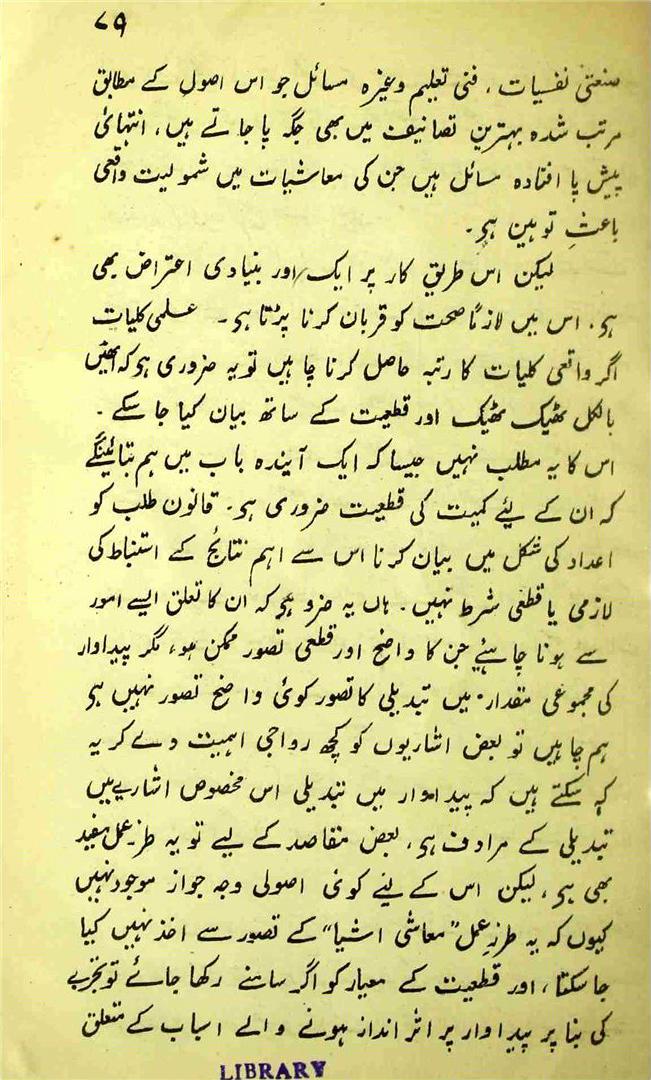 ۷۹
صنعتی نفسیات، فنی تعلیم وغیرہ مسائل جو اس اصول کے مطابق
مرتب شدہ بہترین تصانیف میں بھی جگہ پا جاتے ہیں، انتہائی
پیش پا افتادہ مسائل ہیں جن کی معاشیات میں شمولیت واقعی
باعثِ توہین ہی۔
لیکن اس طریقِ کار پر ایک اور بنیادی اعتراض بھی
ہی۔ اس میں لازماً صحت کو قربان کرنا پڑتا ہی۔ علمی کلیات
اگر واقعی کلیات کا رتبہ حاصل کرنا چاہیں تو یہ ضروری ہی کہ انھیں
بالکل ٹھیک ٹھیک اور قطعیت کے ساتھ بیان کیا جا سکے۔
اس کا یہ مطلب نہیں جیسا کہ ایک آیندہ باب میں ہم بتائینگے
کہ ان کے لیئے کمیت کی قطعیت ضروری ہی۔ قانون طلب کو
اعداد کی شکل میں بیان کرنا اس سے اہم نتائج کے استنباط کی
لازمی یا قطعی شرط نہیں۔ ہاں یہ ضرو ہی کہ ان کا تعلق ایسے امور
سے ہونا چاہئیے جن کا واضح اور قطعی تصور ممکن ہو، مگر پیداوار
کی مجموعی مقدار میں تبدیلی کا تصور کوئی واضح تصور نہیں ہی
ہم چاہیں تو بعض اشاریوں کو کچھ رواجی اہمیت دے کر یہ
کہہ سکتے ہیں کہ پیداوار میں تبدیلی اس مخصوص اشاریے میں
تبدیلی کے مرادف ہی، بعض مقاصد کے لیے تو یہ طرزِ عمل مفید
بھی ہی، لیکن اس کے لیئے کوئی اصولی وجہ جواز موجود نہیں
کیوں کہ یہ طرزِ عمل "معاشی اشیا" کے تصور سے اخذ نہیں کیا
جا سکتا، اور قطعیت کے معیار کو اگر سامنے رکھا جائے تو تجربے
کی بنا پر پیداوار پر اثر انداز ہونے والے اسباب کے متعلق
LIBRARY